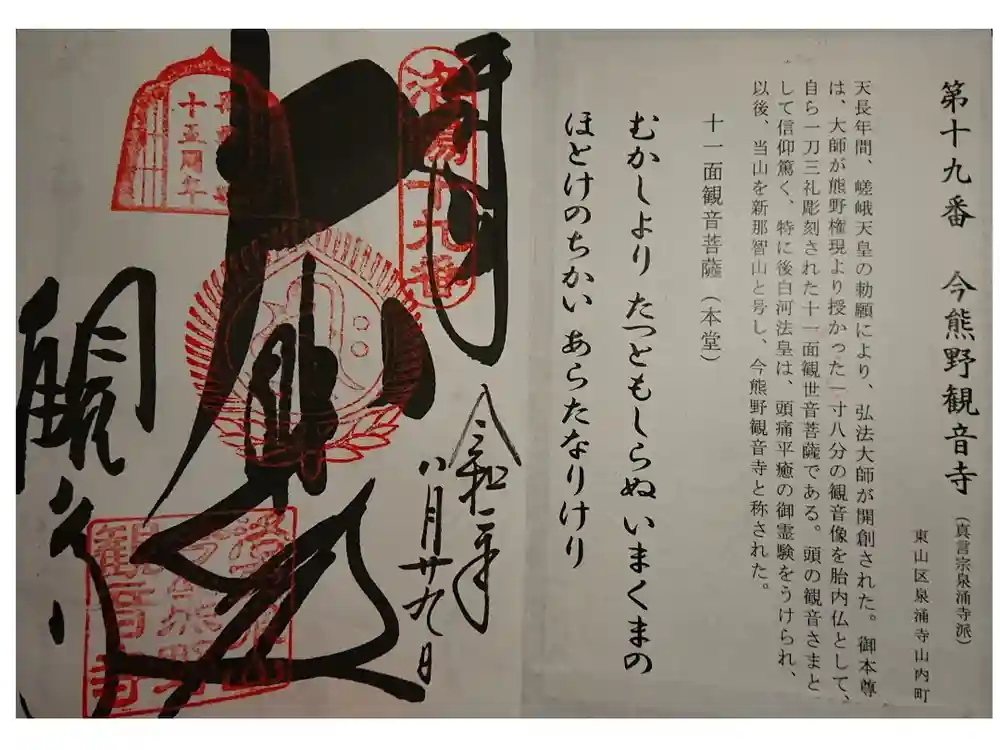 第十九番　今熊野観音寺（真言宗泉涌寺派）
東山区泉涌寺山内町
天長年間、嵯峨天皇の勅願により、弘法大師が開創された。御本尊
は、大師が熊野権現より授かった一寸八分の観音像を胎内仏として、
自ら一刀三礼彫刻された十一面観世音菩薩である。頭の観音さまと
して信仰篤く、特に後白河法皇は、頭痛平癒の御霊験をうけられ、
以後、当山を新那智山と号し、今熊野観音寺と称された。
十一面観音菩薩（本堂）
むかしより たつともしらぬ いまくまの
ほとけのちかい あらたなりけり
洛陽十九番
令和二年
八月廿九日
十五周年
観音寺